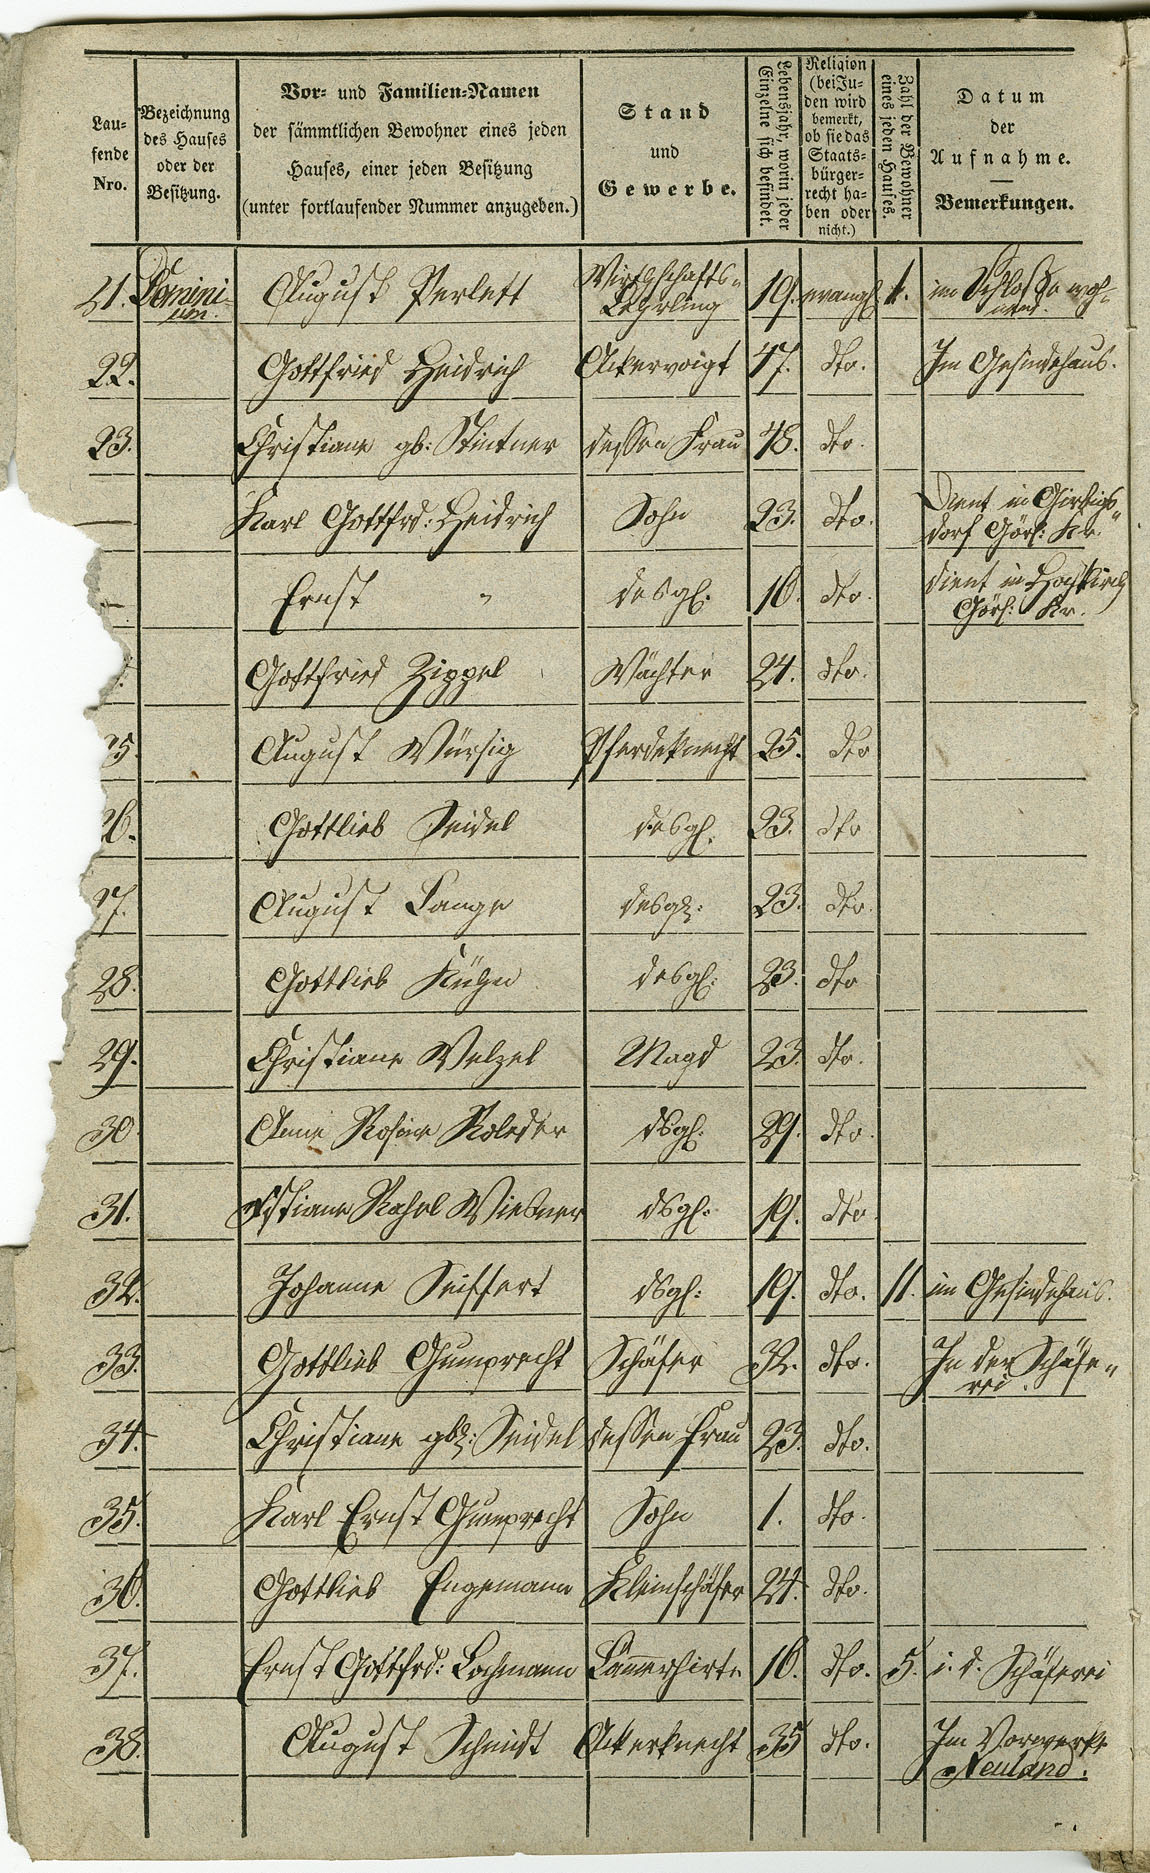 Lau-
fende
Nro.
Bezeichnung
des Hauses
oder der
Besitzung.
Vor- und Familien-Namen
der sämmtlichen Bewohner eines jeden
Hauses, einer jeden Besitzung
(unter fortlaufender Nummer anzugeben.)
Stand
und
Gewerbe.
Lebensjahr, worin jeder
Einzelne sich befindet.
Religion
(bei Ju-
den wird
bemerkt,
ob sie das
Staats-
bürger-
recht ha-
ben oder
nicht.)
Zahl der Bewohner
eines jeden Hauses.
Datum
der
Aufnahme.
Bemerkungen.
21. Domini- August Perlett Wirthschafts- 19. evangl. 1. im Schlosse woh-
um. Lehrling
22. Gottfried Heidrich Ackervoigt 47. dto. Im Gesindehaus.
23. Christiane gb: Stintner dessen Frau 48. dto.
— Karl Gottfrd: Heidrich Sohn 23. dto. Dient in Girbigs-
dorf Görl: Kr.
— Ernst " desgl. 16. dto. dient in Hochkirch
Görl: Kr.
Gottfried Zippel Wächter 24. dto.
25. August Würsig Pferdeknecht 25. dto
26. Gottlieb Seidel desgl. 23. dto
27. August Lange desgl: 23. dto.
28. Gottlieb Kühn desgl: 23. dto
29. Christiane Welzel Magd 23. dto.
30. Anne Rosine Roleder dsgl: 29. dto.
31. Rahel Wiesner dsgl: 19. dto
32. Johanne Seiffert dsgl: 19. dto. 11. im Gesindehaus.
33. Gottlieb Gumprecht Schäfer 32. dto. In der Schäfe-
rei.
34. Christiane gb: Seidel dessen Frau 23. dto.
35. Karl Ernst Gumprecht Sohn 1. dto.
36. Gottlieb Engemann Kleinschäfer 24. dto.
37. Ernst Gottfrd: Lachmann Lämmerhirte 16. dto. 5. i. d. Schäferei
38. August Schmidt Ackerknecht 35 dto. Im Vorwerke
Neuland.